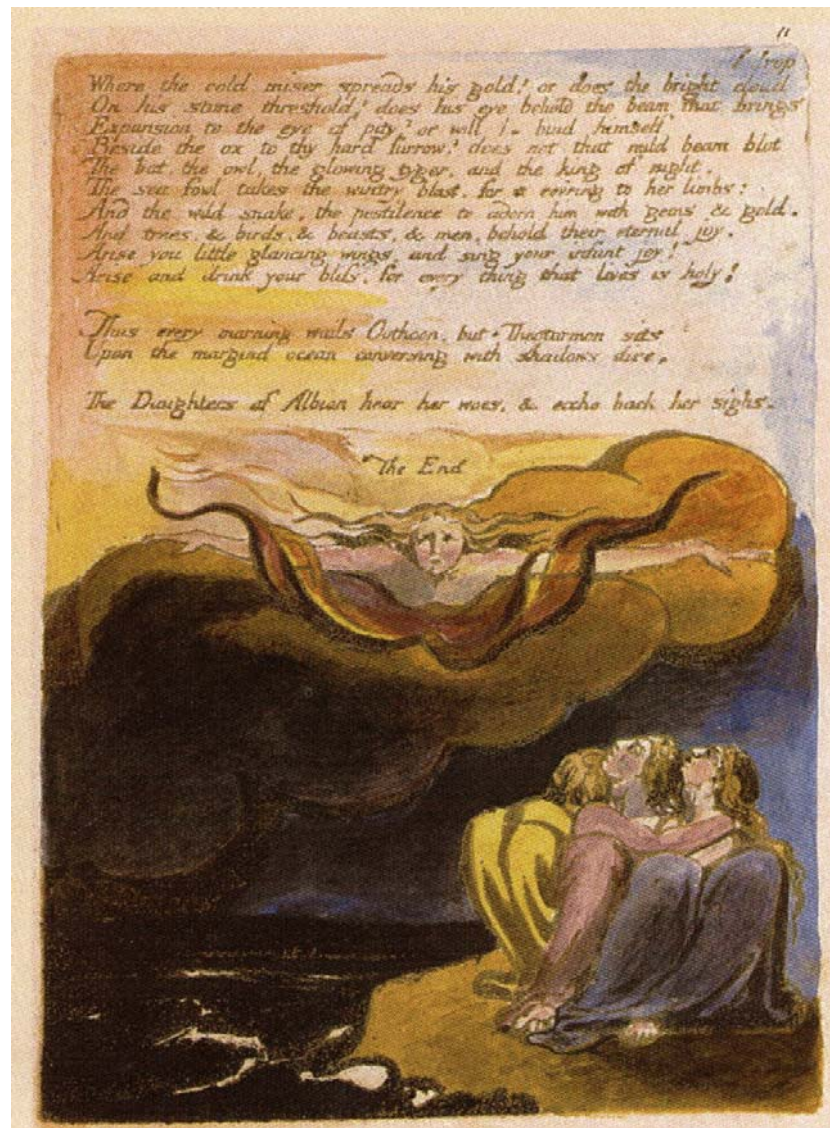 11
Where the cold miser spreads his gold! or does the bright cloud drop
On his stone threshold! does his eye behold the beam that brings
Expansion to the eye of pity? or will he bind himself
Beside the ox to thy hard furrow? does not that mild beam blot
The bat, the owl, the glowing tyger, and the king of night.
The sea fowl takes the wintry blast. for a cov'ring to her limbs:
And the wild snake, the pestilence to adorn him with gems & gold.
And trees. & birds. & beasts. & men. behold their eternal joy.
Arise you little glancing wings, and sing your infant joy!
Arise and drink your bliss, for every thing that lives is holy!
Thus every morning wails Oothoon. but Theotormon sits
Upon the margind ocean conversing with shadows dire.
The Daughters of Albion hear her woes. & eccho back her sighs.
The End